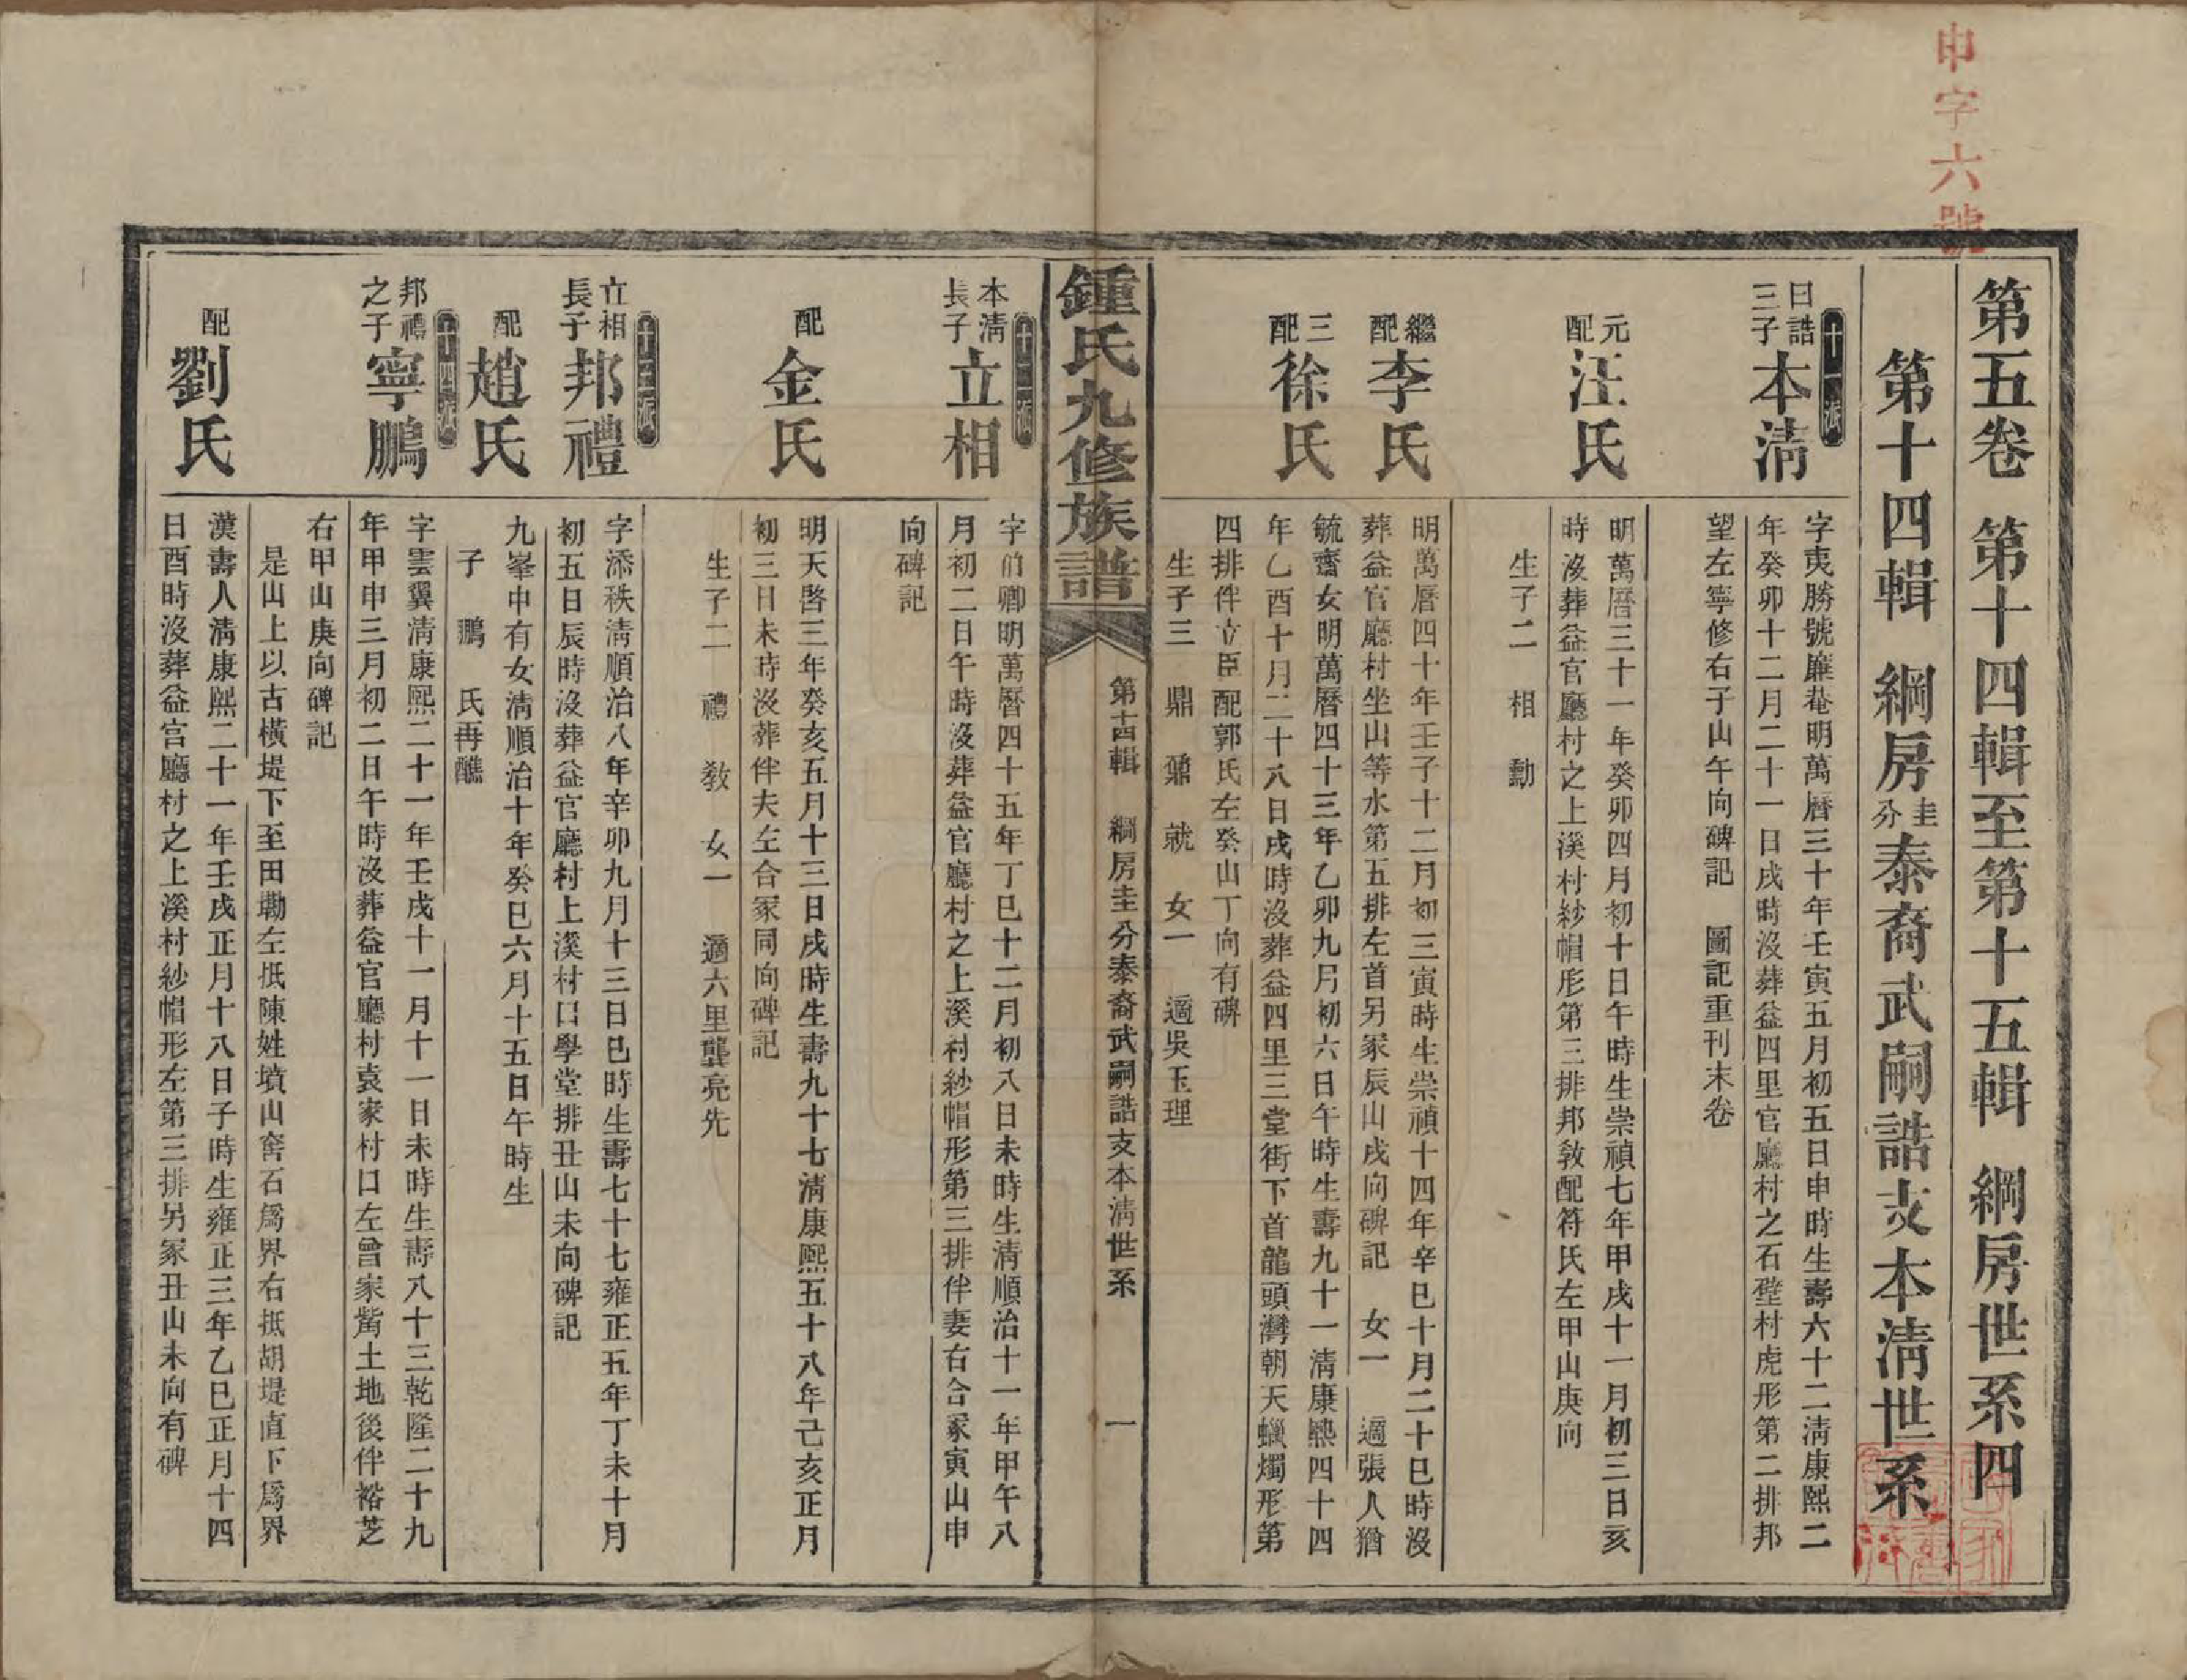 申字六號
第五卷 第十四輯至第十五輯 綱房世系四
第十四輯 綱房圭分泰裔武嗣誥支本清世系
十一派
日誥三子
本清
字夷勝號廉菴明萬曆三十年壬寅五月初五日申時生壽六十二清康熙二
年癸卯十二月二十一日戌時沒葬益四里官廳村之石壁村虎形第二排邦
望左寧修右子山午向碑記 圖記重刊末卷
元配
汪氏
明萬曆三十一年癸卯四月初十日午時生崇禎七年甲戌十一月初三日亥
時沒葬益官廳村之上溪村紗帽形第三排邦敎配符氏左甲山庚向
生子二 相 勳
繼配
李氏
明萬曆四十年壬子十二月初三寅時生崇禎十四年辛巳十月二十巳時沒
葬益官廳村坐山等水第五排左首另冢辰山戌向碑記 女一 適張人猶
三配
徐氏
毓齋女明萬曆四十三年乙卯九月初六日午時生壽九十一清康熙四十四
年乙酉十月二十八日戌時沒葬益四里三堂街下首龍頭灣朝天蠟燭形第
四排伴立臣配郭氏左癸山丁向有碑
生子三 鼎 鼐 就 女一 適吳玉理
鍾氏九修族譜
第十四輯 綱房圭分泰裔武嗣誥支本清世系
一
十二派
本清長子
立相
字伯卿明萬曆四十五年丁巳十二月初八日未時生清順治十一年甲午八
月初二日午時沒葬益官廳村之上溪村紗帽形第三排伴妻右合冢寅山申
向碑記
配
金氏
明天啓三年癸亥五月十三日戌時生壽九十七清康熙五十八年己亥正月
初三日未時沒葬伴夫左合冢同向碑記
生子二 禮 敎 女一 適六里龔亮先
十三派
立相長子
邦禮
字添秩清順治八年辛卯九月十三日巳時生壽七十七雍正五年丁未十月
初五日辰時沒葬益官廳村上溪村口學堂排丑山未向碑記
配
趙氏
九峯申有女清順治十年癸巳六月十五日午時生
子 鵬 氏再醮
十四派
邦禮之子
寧鵬
字雲翼清康熙二十一年壬戌十一月十一日未時生壽八十三乾隆二十九
年甲申三月初二日午時沒葬益官廳村袁家村口左曾家觜土地後伴裕芝
右甲山庚向碑記
是山上以古橫堤下至田勘左抵陳姓墳山窖石爲界右抵胡堤直下爲界
配
劉氏
漢壽人清康熙二十一年壬戌正月十八日子時生雍正三年乙巳正月十四
日酉時沒葬益官廳村之上溪村紗帽形左第三排另冢丑山未向有碑